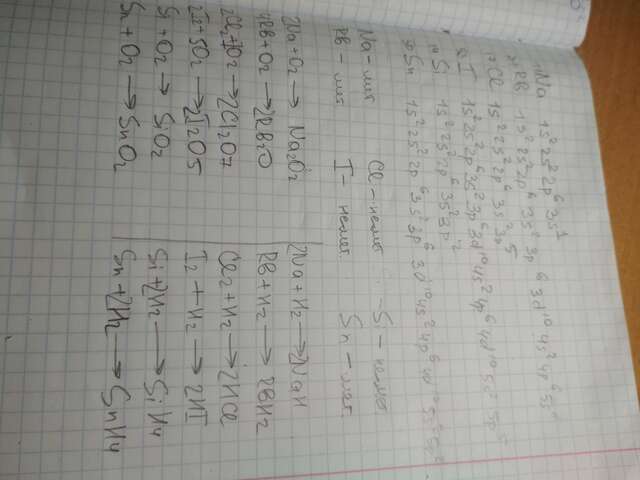 ₁₁Na 1s² 2s² 2p⁶ 3s¹
Rb 1s² 2s² 2p⁶ 3s² 3p⁶ 3d¹⁰ 4s² 4p⁶ 5s¹
₁₇Cl 1s² 2s² 2p⁶ 3s² 3p⁵
I 1s² 2s² 2p⁶ 3s² 3p⁶ 3d¹⁰ 4s² 4p⁶ 4d¹⁰ 5s² 5p⁵
₁₄Si 1s² 2s² 2p⁶ 3s² 3p²
₅₀Sn 1s² 2s² 2p⁶ 3s² 3p⁶ 3d¹⁰ 4s² 4p⁶ 4d¹⁰ 5s² 5p²
Na – мет Cl – немет. Si – немет
Rb – мет I – немет. Sn – мет.
2Na + O₂ → Na₂O₂ 2Na + H₂ → 2NaH
4Rb + O₂ → 2Rb₂O Rb + H₂ → RbH₂
2Cl₂ + 7O₂ → 2Cl₂O₇ Cl₂ + H₂ → 2HCl
2I₂ + 5O₂ → 2I₂O5 I₂ + H₂ → 2HI
Si + O₂ → SiO₂ Si + 2H₂ → SiH₄
Sn + O₂ → SnO₂ Sn + 2H₂ → SnH₄